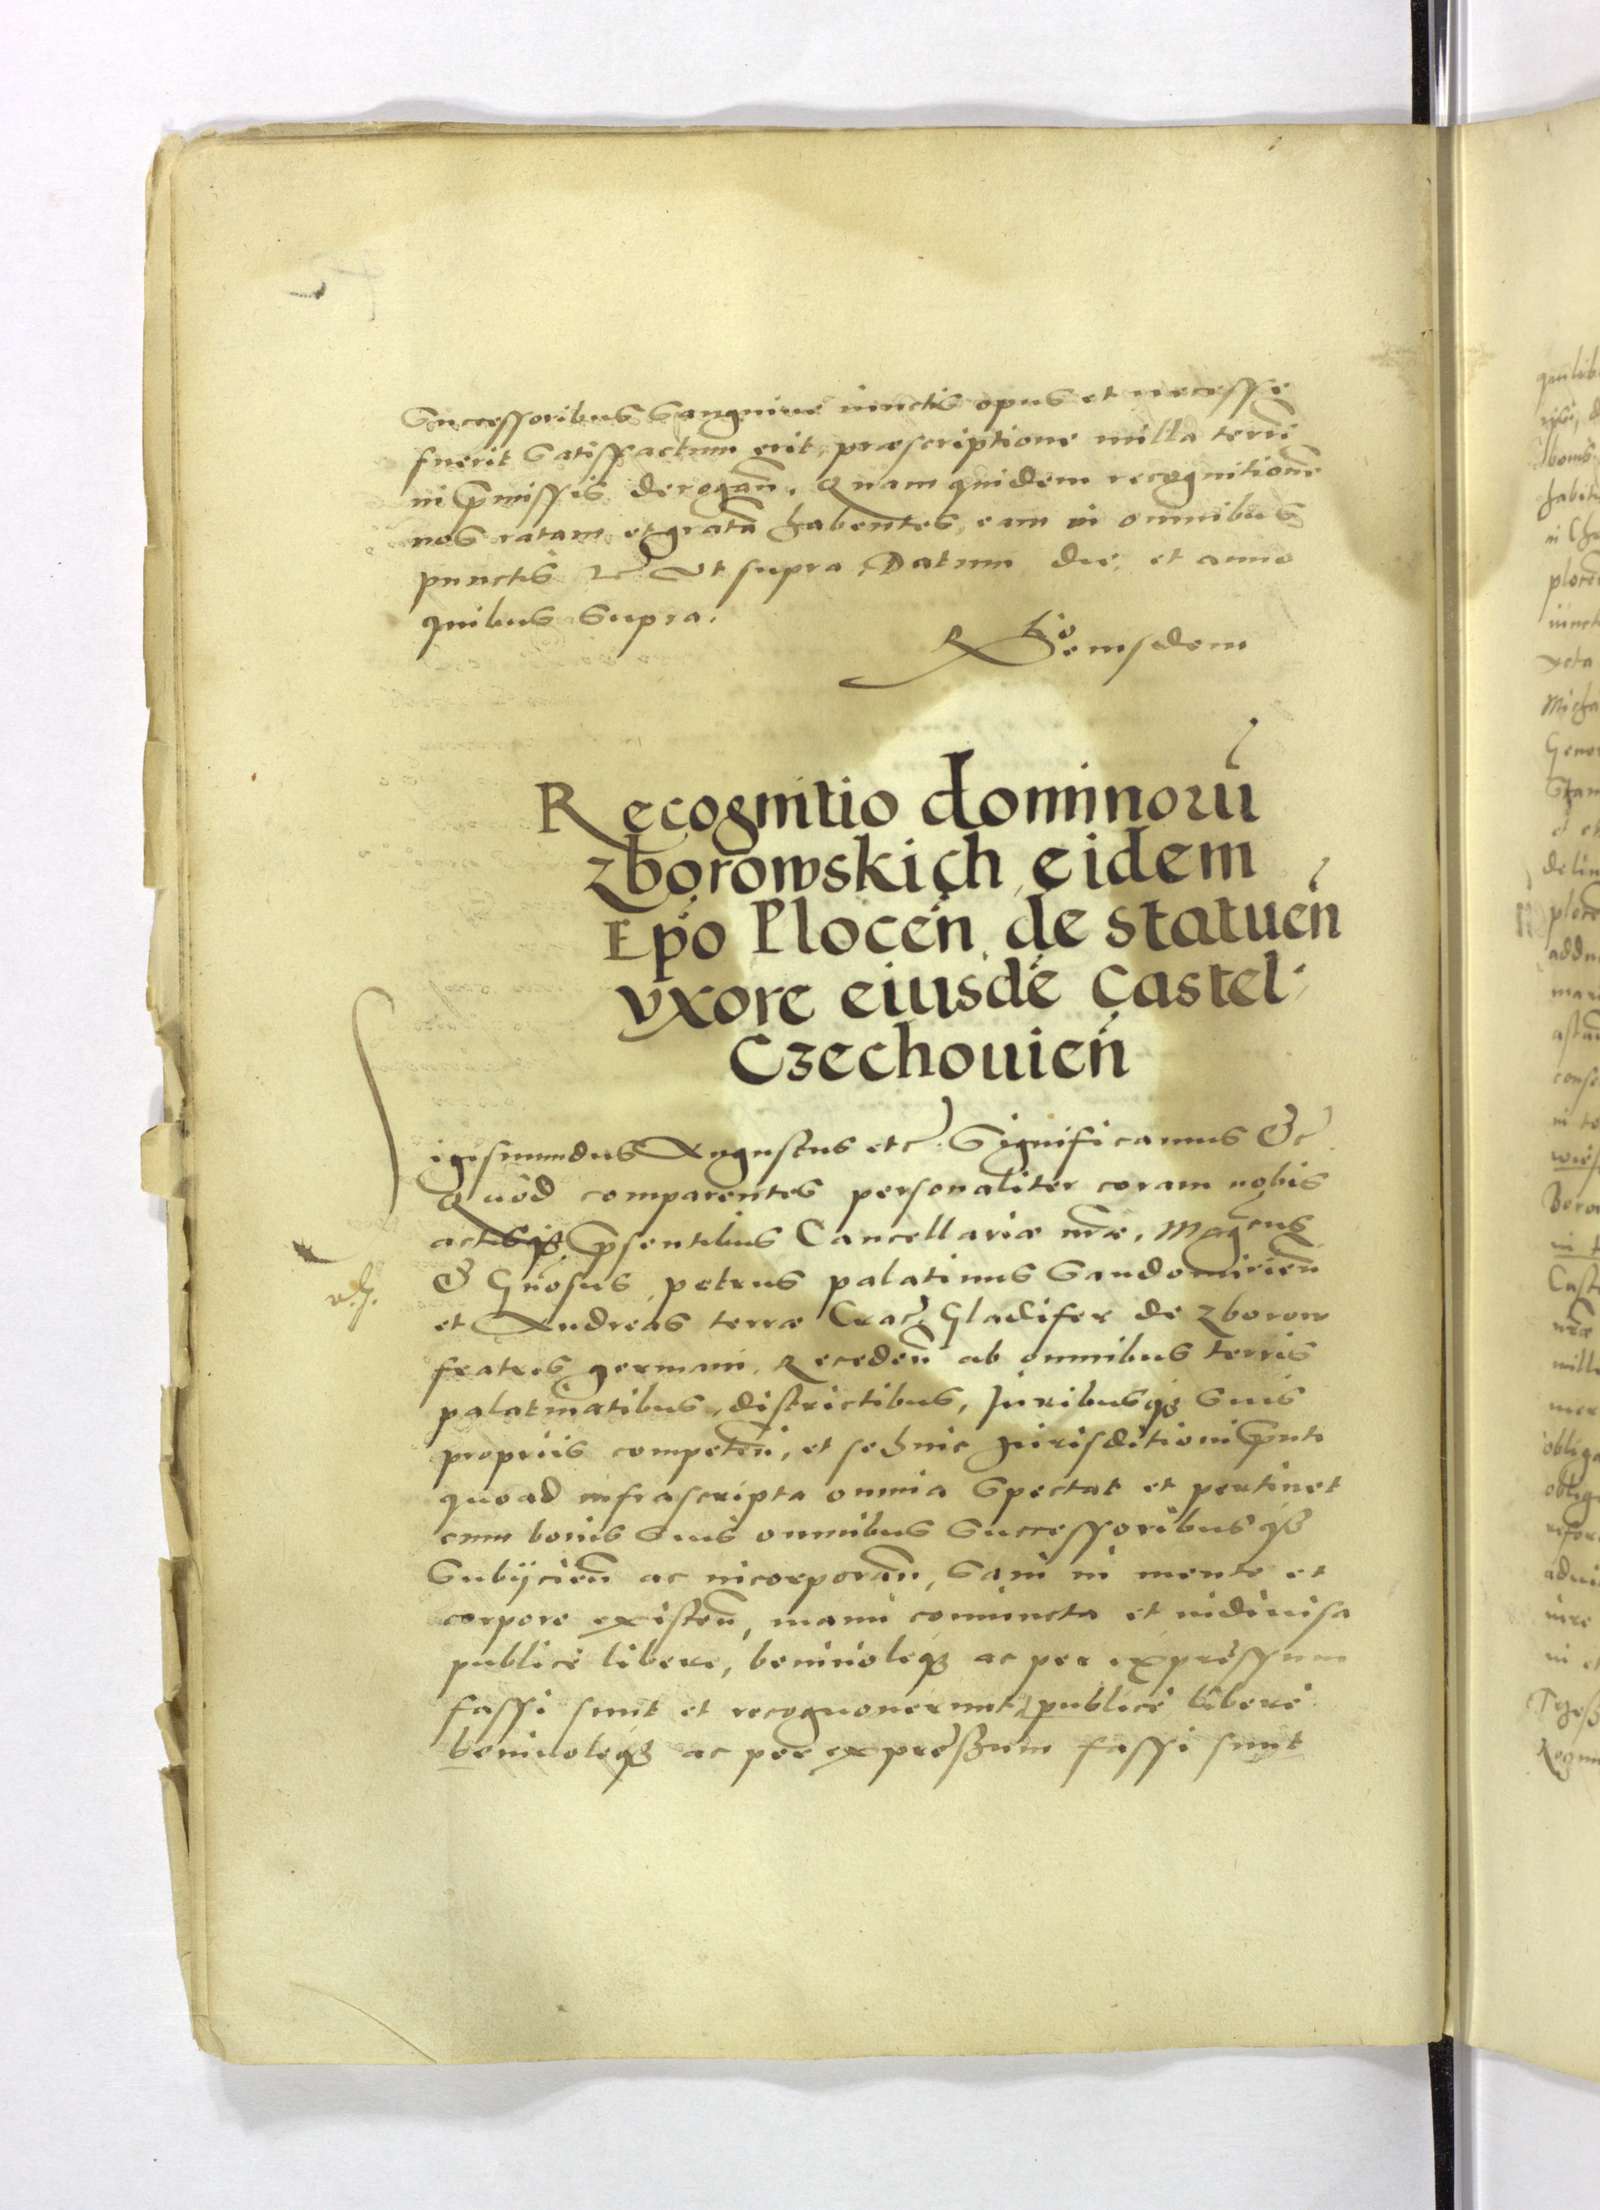 Successoribus Sanguine iunctis opus et necesse
fuerit Satisfactum erit, praescriptione nulla terrı̃
in p̃missis derogañ. Quam quidem recognitionẽ
nos ratam et gratã habentes, eam in omnibus
punctis etc̃ Vt supra Datum die, et anno
quibus Supra.
Rõ eiusdem
Recognitio dominorũ
zborowskich eidem
Ep̃o Plocen̄ de statuen̄
vxore eiusdẽ Castel
Czechouien̄
igismundus Augustus etc̃. Significamus &c̃
Quòd comparentes personaliter coram nobis
actisqʒ p̃sentibus Cancellariæ nr̃æ, Mag̃cus
& Gñosus, petrus palatinus Sandomirieñ
et Andreas terræ Crac̃ Gladifer de zborow
fratres germani, Recedeñ ab omnibus terris
palatinatibus, districtibus, Juribusqʒ Suis
propriis competeñ, et se huic Jurisditioni p̃nti
quo ad infrascripta omnia Spectat et pertinet
cum bonis Suis omnibus Successoribusqʒ
Subijcieñ ac incorporañ, Sani in mente et
corpore existeñ, manu coniuncta et indiuisa
publicè libere, beniuoleqʒ ac per expressum
fassi sunt et recognouerunt, publicè liberè
beniuoleqʒ ac per expreßum fassi sunt